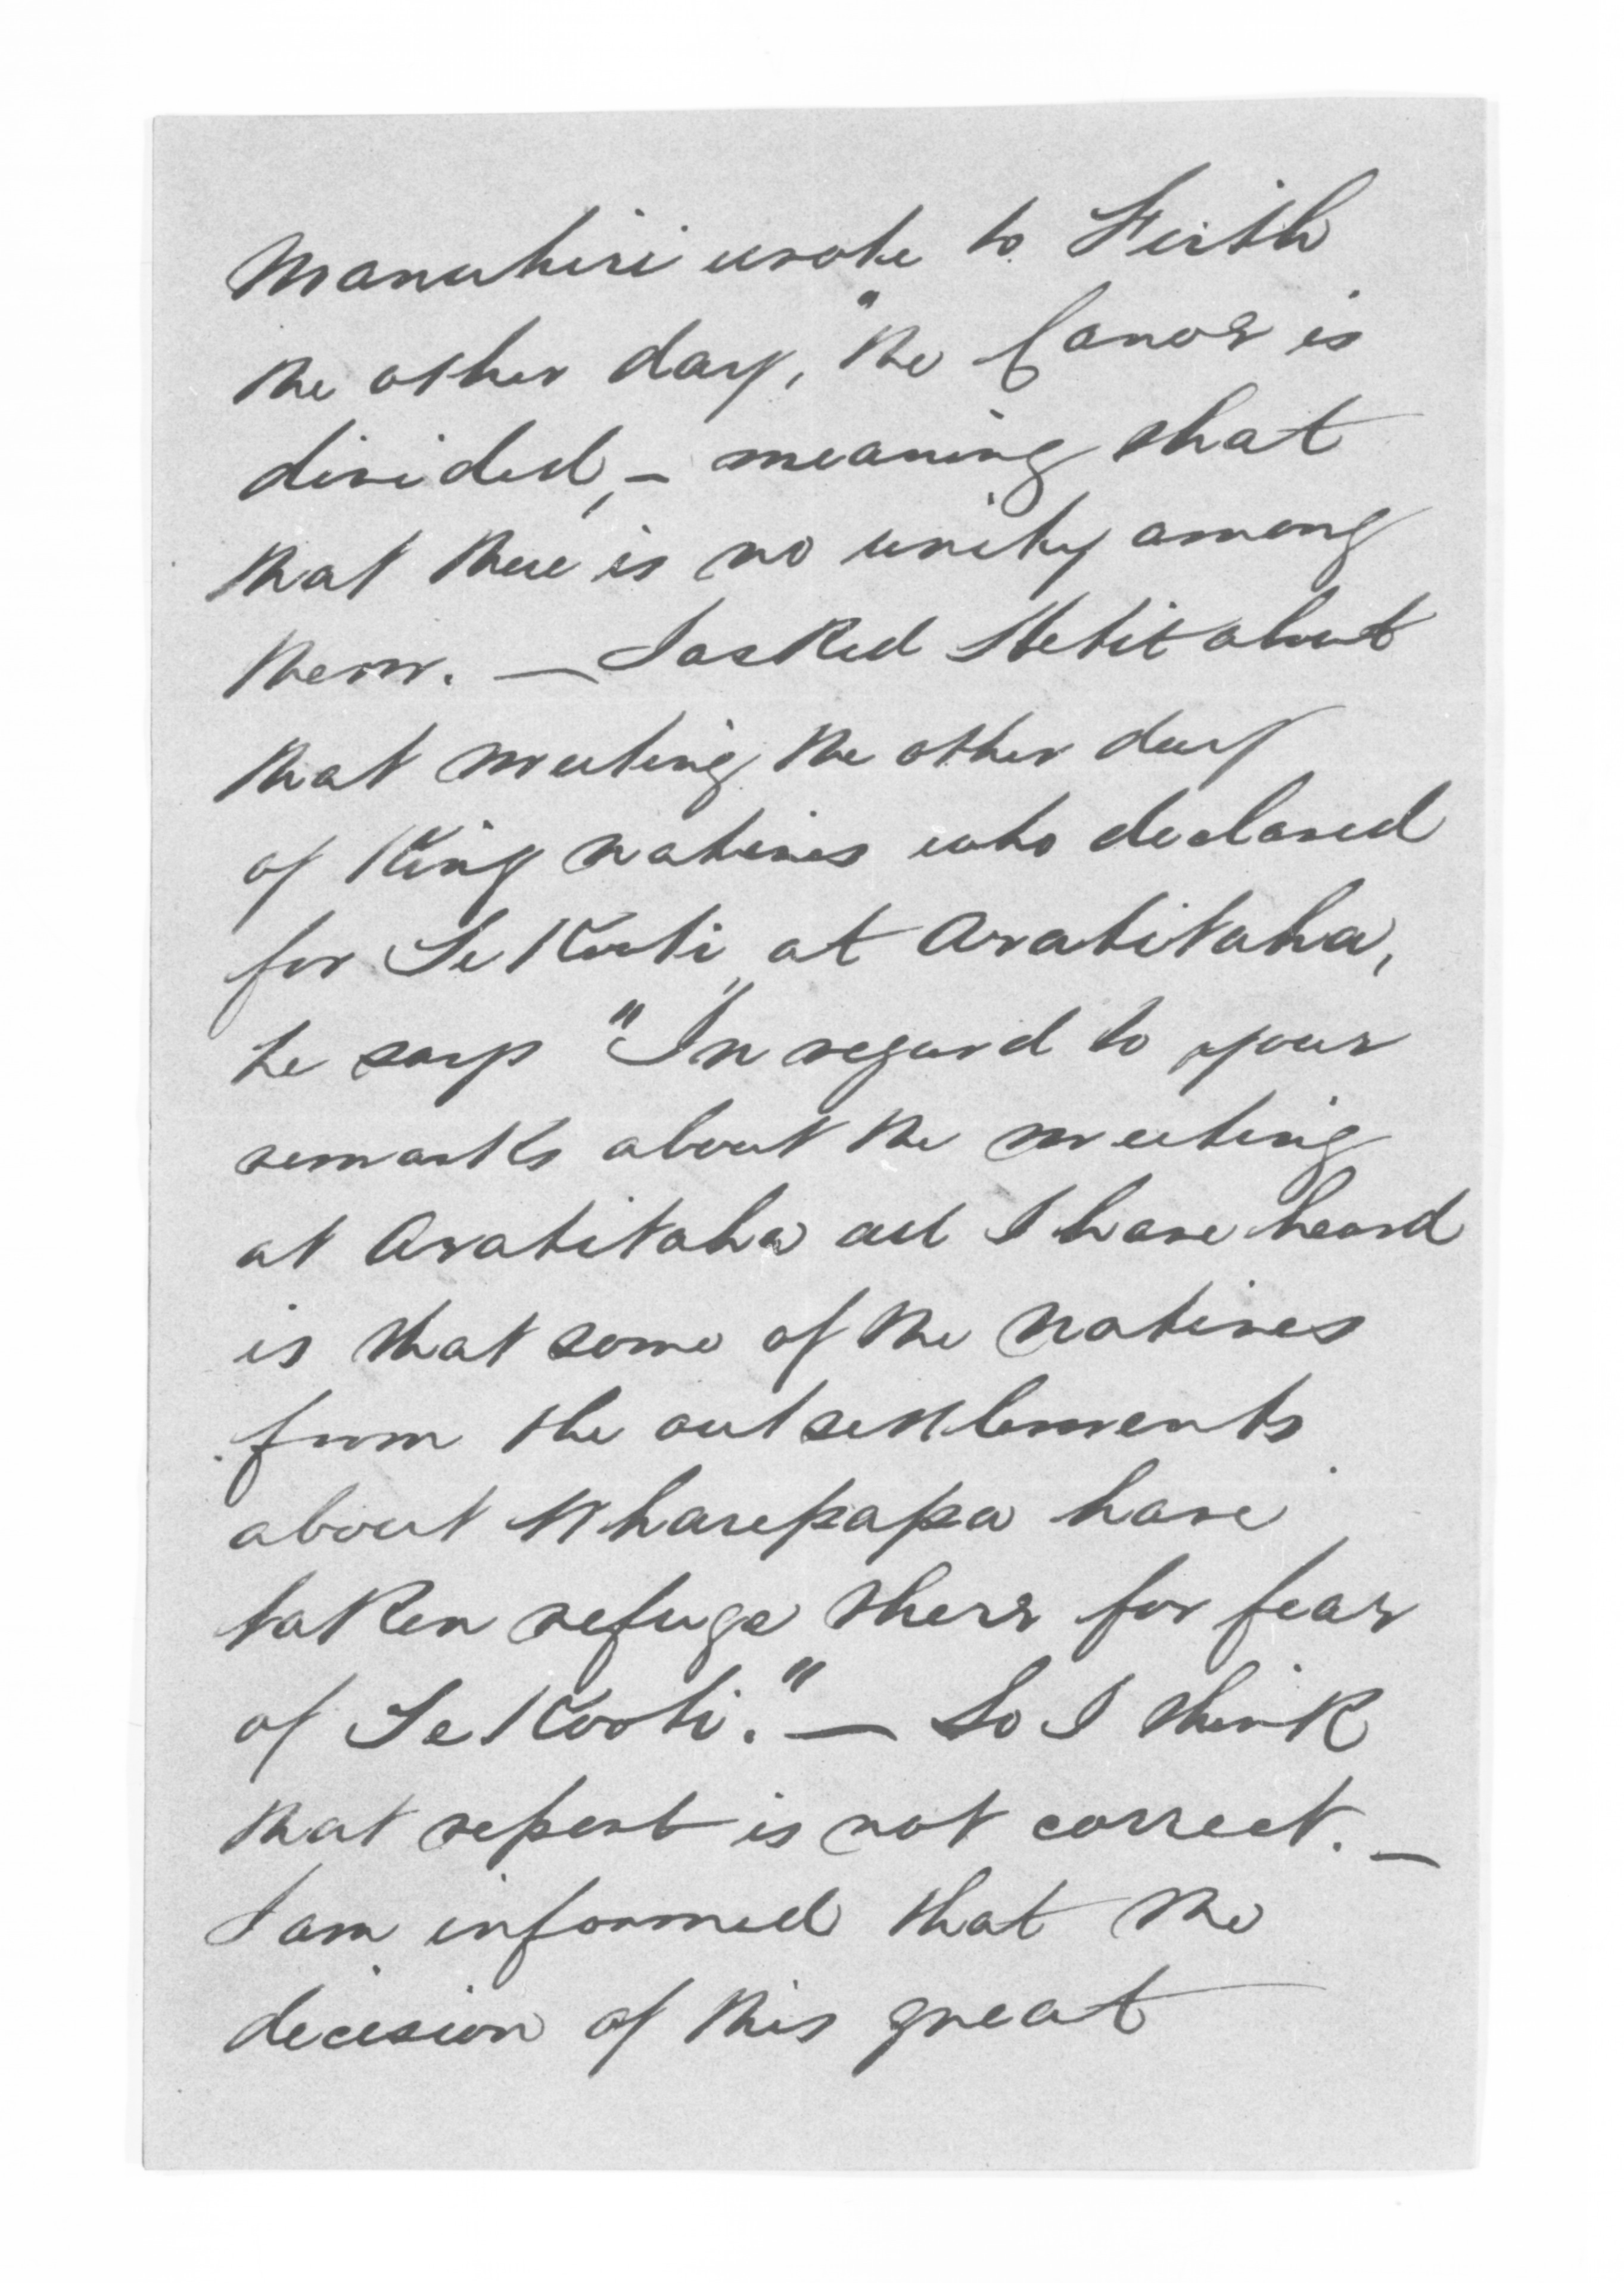 Manuhiri wrote to Firth
the other day, "the Canoe is
divided, - meaning that
that there is no unity among
them. — I asked Hetit about
that meeting the other day
of King natives who declared
for Te Kooti at Aratitaha,
he says "In regard to your
remarks about the meeting
at Aratitaha all I have heard
is that some of the natives
from the out settlements
about Wharepapa have
taken refuge there for fear
of Te Kooti." — So I think
that report is not correct. —
I am informed that the
decision of this great